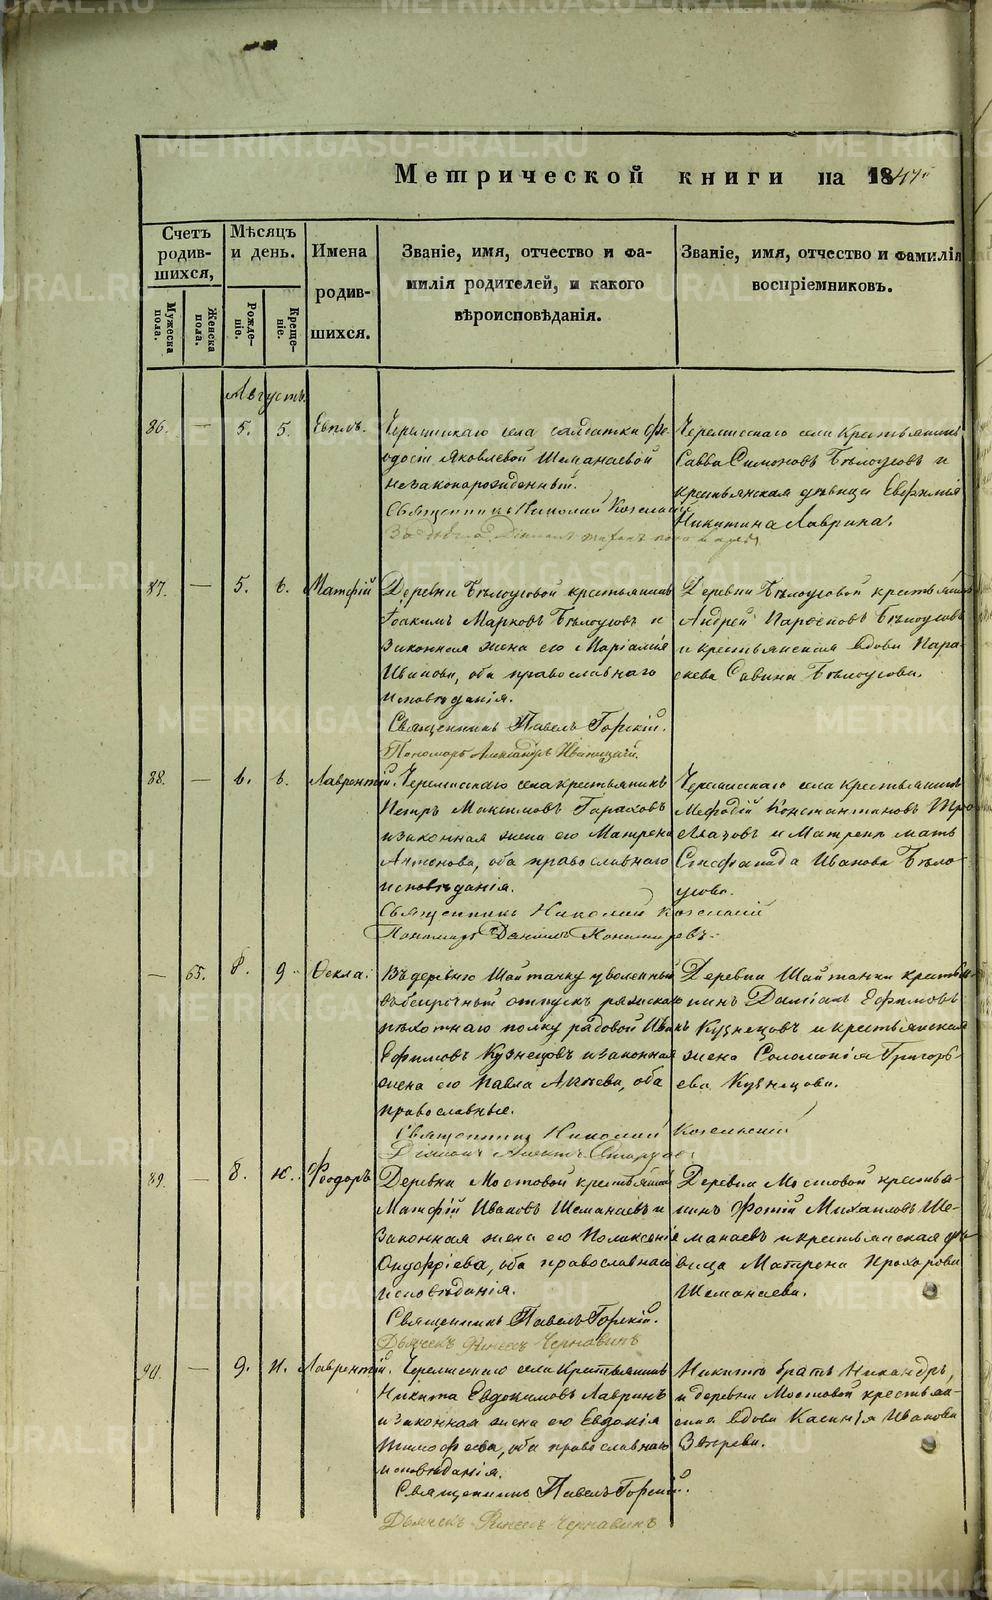 Метрической книги на 1847й
Счетъ родившихся,
Мѣсяцъ и день.
Имена родившихся.
Званіе, имя, отчество и фамилія родителей, и какого вѣроисповѣданія.
Званіе, имя, отчество и фамилія воспріемниковъ.
Мужеска пола.
Женска пола.
Рожденіе.
Крещеніе.
Августъ.
86. — 5. 5. Евплъ.
Черемискаго села солдатки Фе-
одосіи Яковлевой Шеманаевой
незаконорожденный.
Священникъ Николай
Черемисскаго села Крестьянинъ
Савва Симоновъ Бѣлоусовъ и
крестьянская дѣвица Евфимія
Никитина Лаврина.
87. — 5. 6. Матфій
Деревни Бѣлоусовой крестьянинъ
Іоакимъ Марковъ Бѣлоусовъ и
законная жена его Маріамія
Иванова, оба православнаго
исповѣданія.
Священникъ Павелъ Горскій.
Пономарь Александръ
Деревни Бѣлоусовой крестьянинъ
Андрей Парѳеновъ Бѣлоусовъ
и крестьянская вдова Пара-
скева Савина Бѣлоусова.
88. — 6. 6. Лаврентій.
Черемискаго села крестьянинъ
Петръ Максимовъ
и законная жена его Матрена
Антонова, оба православнаго
исповѣданія.
Священникъ Николай
Пономарь Даніилъ
Черемисскаго села Крестьянинъ
Мефодій Константиновъ
и Матрены мать
Стефанида Иванова Бѣло-
усова.
— 65. 8. 9. Ѳекла.
Въ деревню Шайтанку уволенный
въ безсрочный отпускъ
пѣхотнаго полку рядовой Иванъ
Ефимовъ Кузнецовъ и законная
жена его Павла оба
православные.
Священникъ Николай
Діаконъ
Деревни Шайтанки крестья-
нинъ Даміанъ Ефимовъ
Кузнецовъ и крестьянская
жена Соломонія Григорь-
ева Кузнецова.
89. — 8. 10. Ѳеодоръ
Деревни Мостовой крестьянинъ
Матфій Ивановъ Шеманаевъ и
законная жена его Поликсенія
Онуфріева, оба православнаго
исповѣданія.
Священникъ Павелъ Горскій.
Дьячекъ Чернавинъ
Деревни Мостовой крестья-
нинъ Фотій Михаиловъ Ше-
манаевъ и крестьянская дѣ-
вица Матрена Прохорова
Шеманаева.
90. — 9. 11. Лаврентій.
Черемискаго села Крестьянинъ
Никита Евдокимовъ Лавринъ
и законная жена его Евдокія
Тимофеева, оба православнаго
исповѣданія.
Священникъ Павелъ Горскій.
Дьячекъ Чернавинъ
Никиты братъ Никандръ,
и деревни Мостовой крестьян-
ская вдова Касинія Иванова
Звѣрева.
METRIKI.GASO-URAL.RU